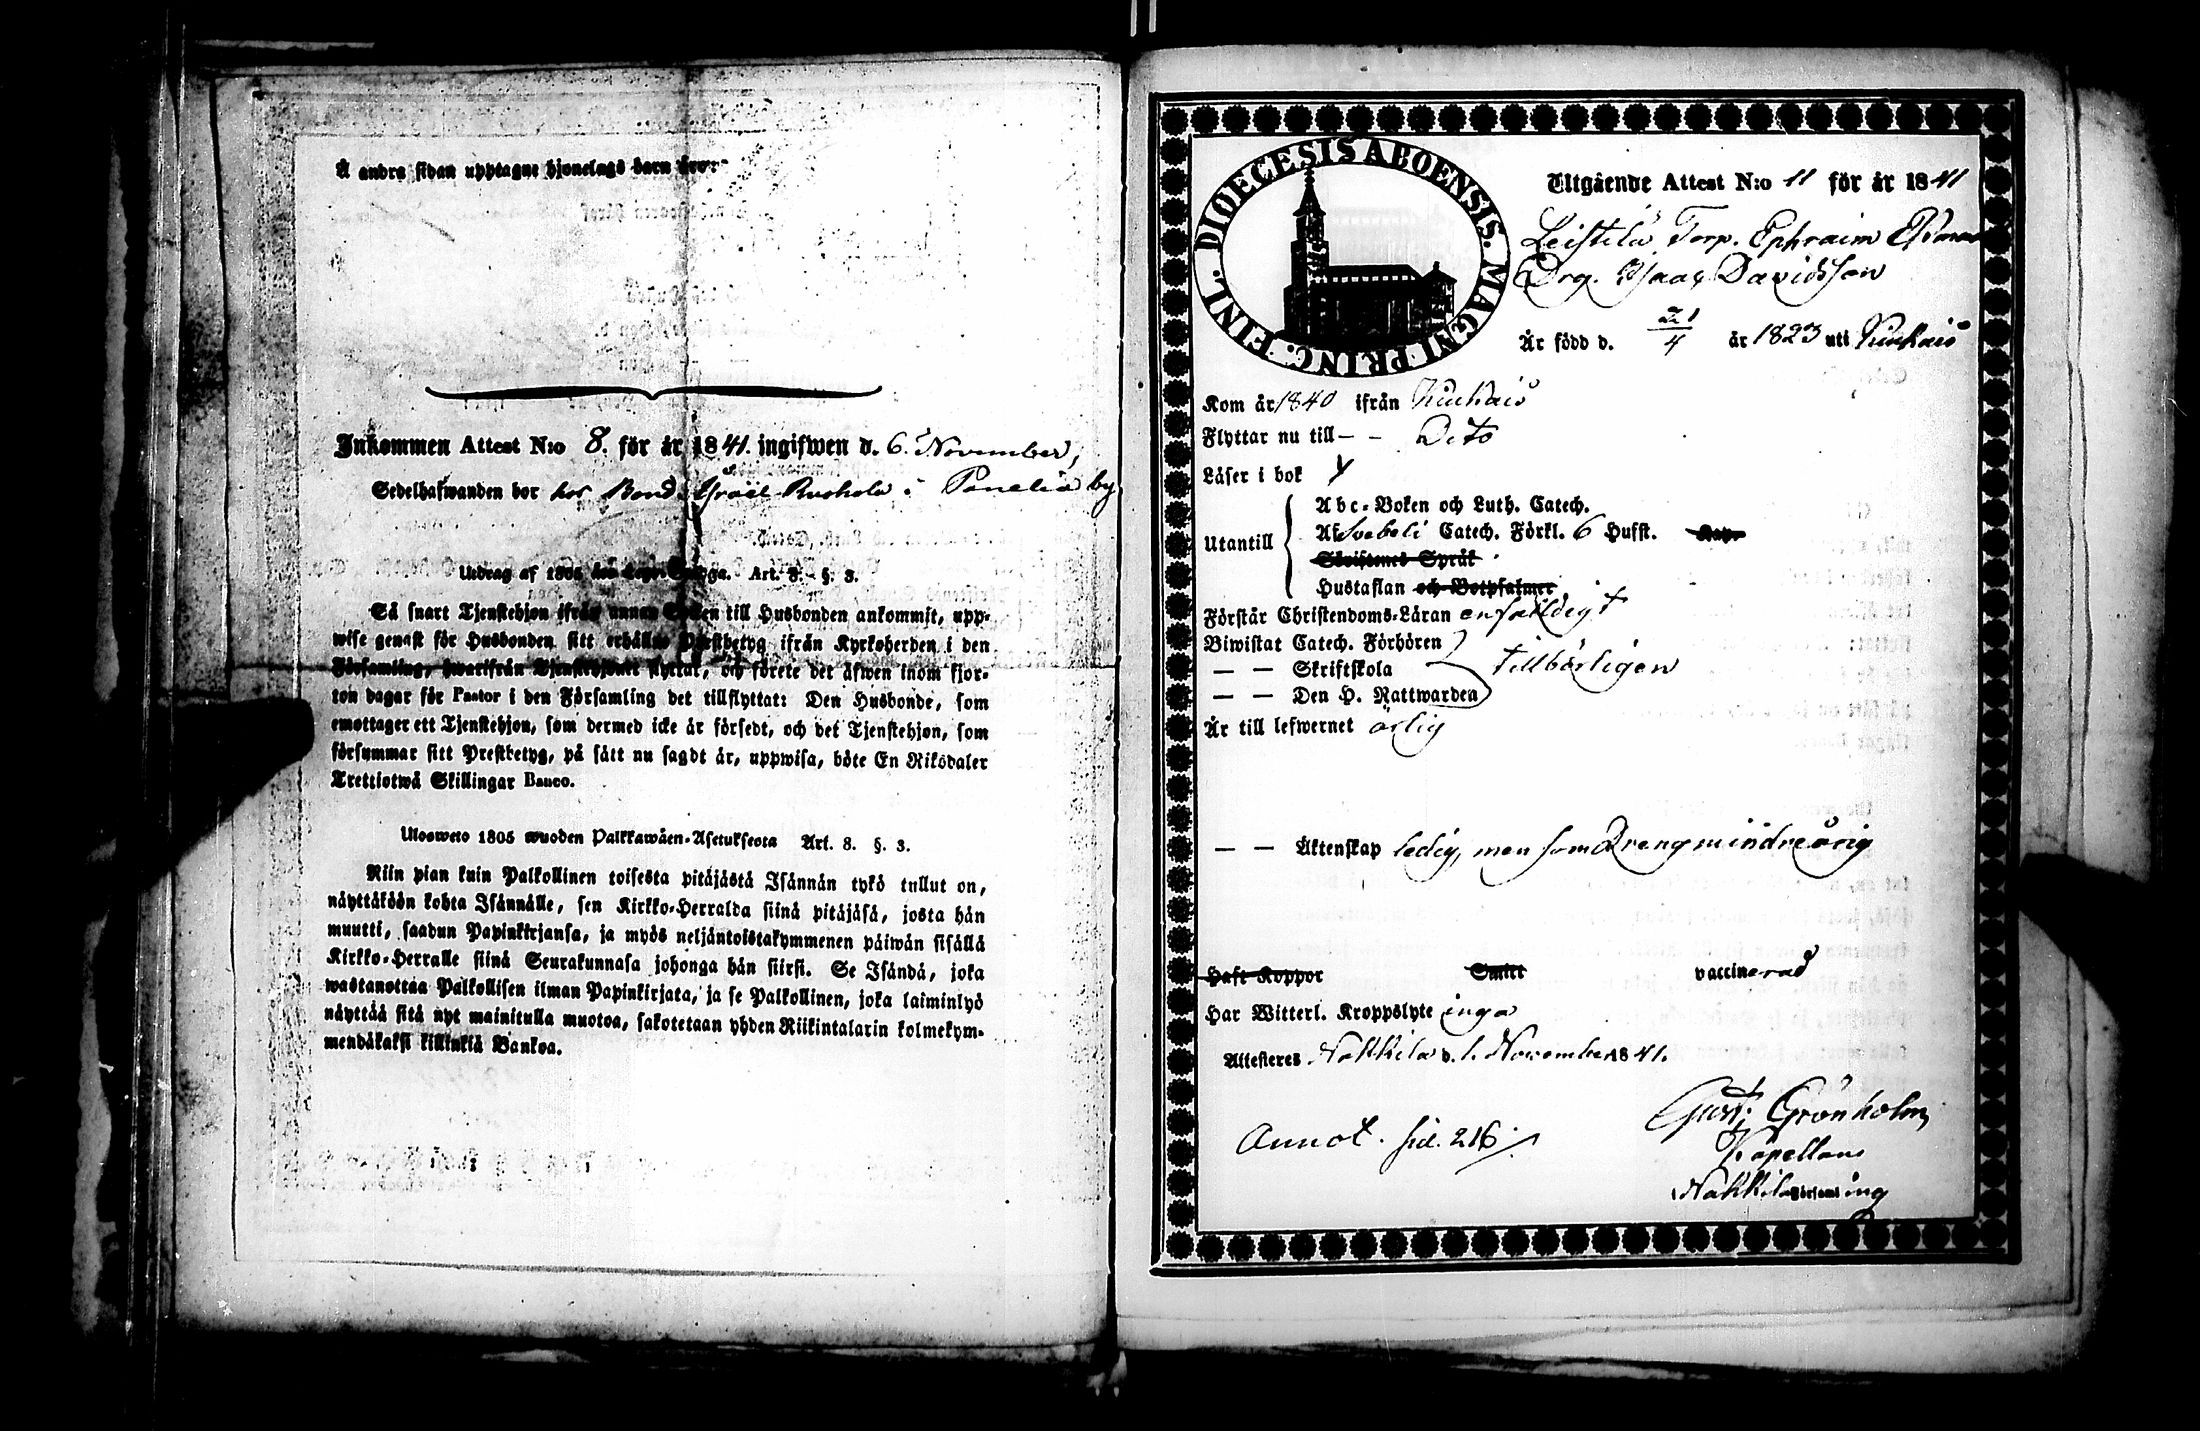 Å andra sidan upptagne hjonelags barn äro:
Inkommen Attest N:o 8. för år 1841. ingifwen d. 6 November,
Sedelhafwanden bor hos Bond. Isräel Ruohola i Panelia by
Utdrag af 1805 års Lego-Stadga. Art. 8. §. 3.
Så snart Tjenstehjon ifrån annan Socken till Husbonden ankommit, upp-
wise genast för Husbonden sitt erhållne Prestbetyg ifrån Kyrkoherden i den
Församling, hwarifrån Tjenstehjonet flyttat, och förete det äfwen inom fjor-
ton dagar för Pastor i den Församling det tillflyttat: Den Husbonde, som
emottager ett Tjenstehjon, som dermed icke är försedt, och det Tjenstehjon, som
försummar sitt Prestbetyg, på sätt nu sagdt är, uppwisa, böte En Riksdaler
Trettiotwå Skillingar Banco.
Ulosweto 1805 wuoden Palkkawäen-Asetuksesta Art. 8. §. 3.
Niin pian kuin Palkollinen toisesta pitäjästä Isännän tykö tullut on,
näyttäköön kohta Isännälle, sen Kirkko-Herralda siinä pitäjäsä, josta hän
muutti, saadun Papinkirjansa, ja myös neljäntoistakymmenen päiwän sisällä
Kirkko-Herralle siinä Seurakunnasa johonga hän siirsi. Se Isändä, joka
wastanottaa Palkollisen ilman Papinkirjata, ja se Palkollinen, joka laiminlyö
näyttää sitä nyt mainitulla muotoa, sakotetaan yhden Riikintalarin kolmekym-
mendäkaksi killinkiä Bankoa.
DIOECESIS ABOENSIS. MAGNI PRINC. FINL.
Utgående Attest N:o 11 för år 1841
Leistilä Torp. Ephraim
Drg. Isaac Davidsson
Är född d. 21/4 år 1823 uti Kiukais
Kom år 1840 ifrån Kiukais
Flyttar nu till – – Dito
Läser i bok
Utantill
Abc-Boken och Luth. Catech.
Af Svebeli Catech. Förkl. 6 Hufst. Kap.
Skriftenes Språk
Hustaflan och Botpsalmer
Förstår Christendoms-Läran enfaldigt
Biwistat Catech. Förhören
— — Skriftskola tillbörligen
— — Den H. Nattwarden
Är till lefwernet ärlig
— — Äktenskap ledig, men som Dreng minderårig
Haft Koppor Smitt vaccinerad
Har Witterl. Kroppslyte inga
Attesteras Nakkila d. 1. November 1841.
Gust. Grönholm
Annot. sid. 216.
Kapellan
Nakkila Församling